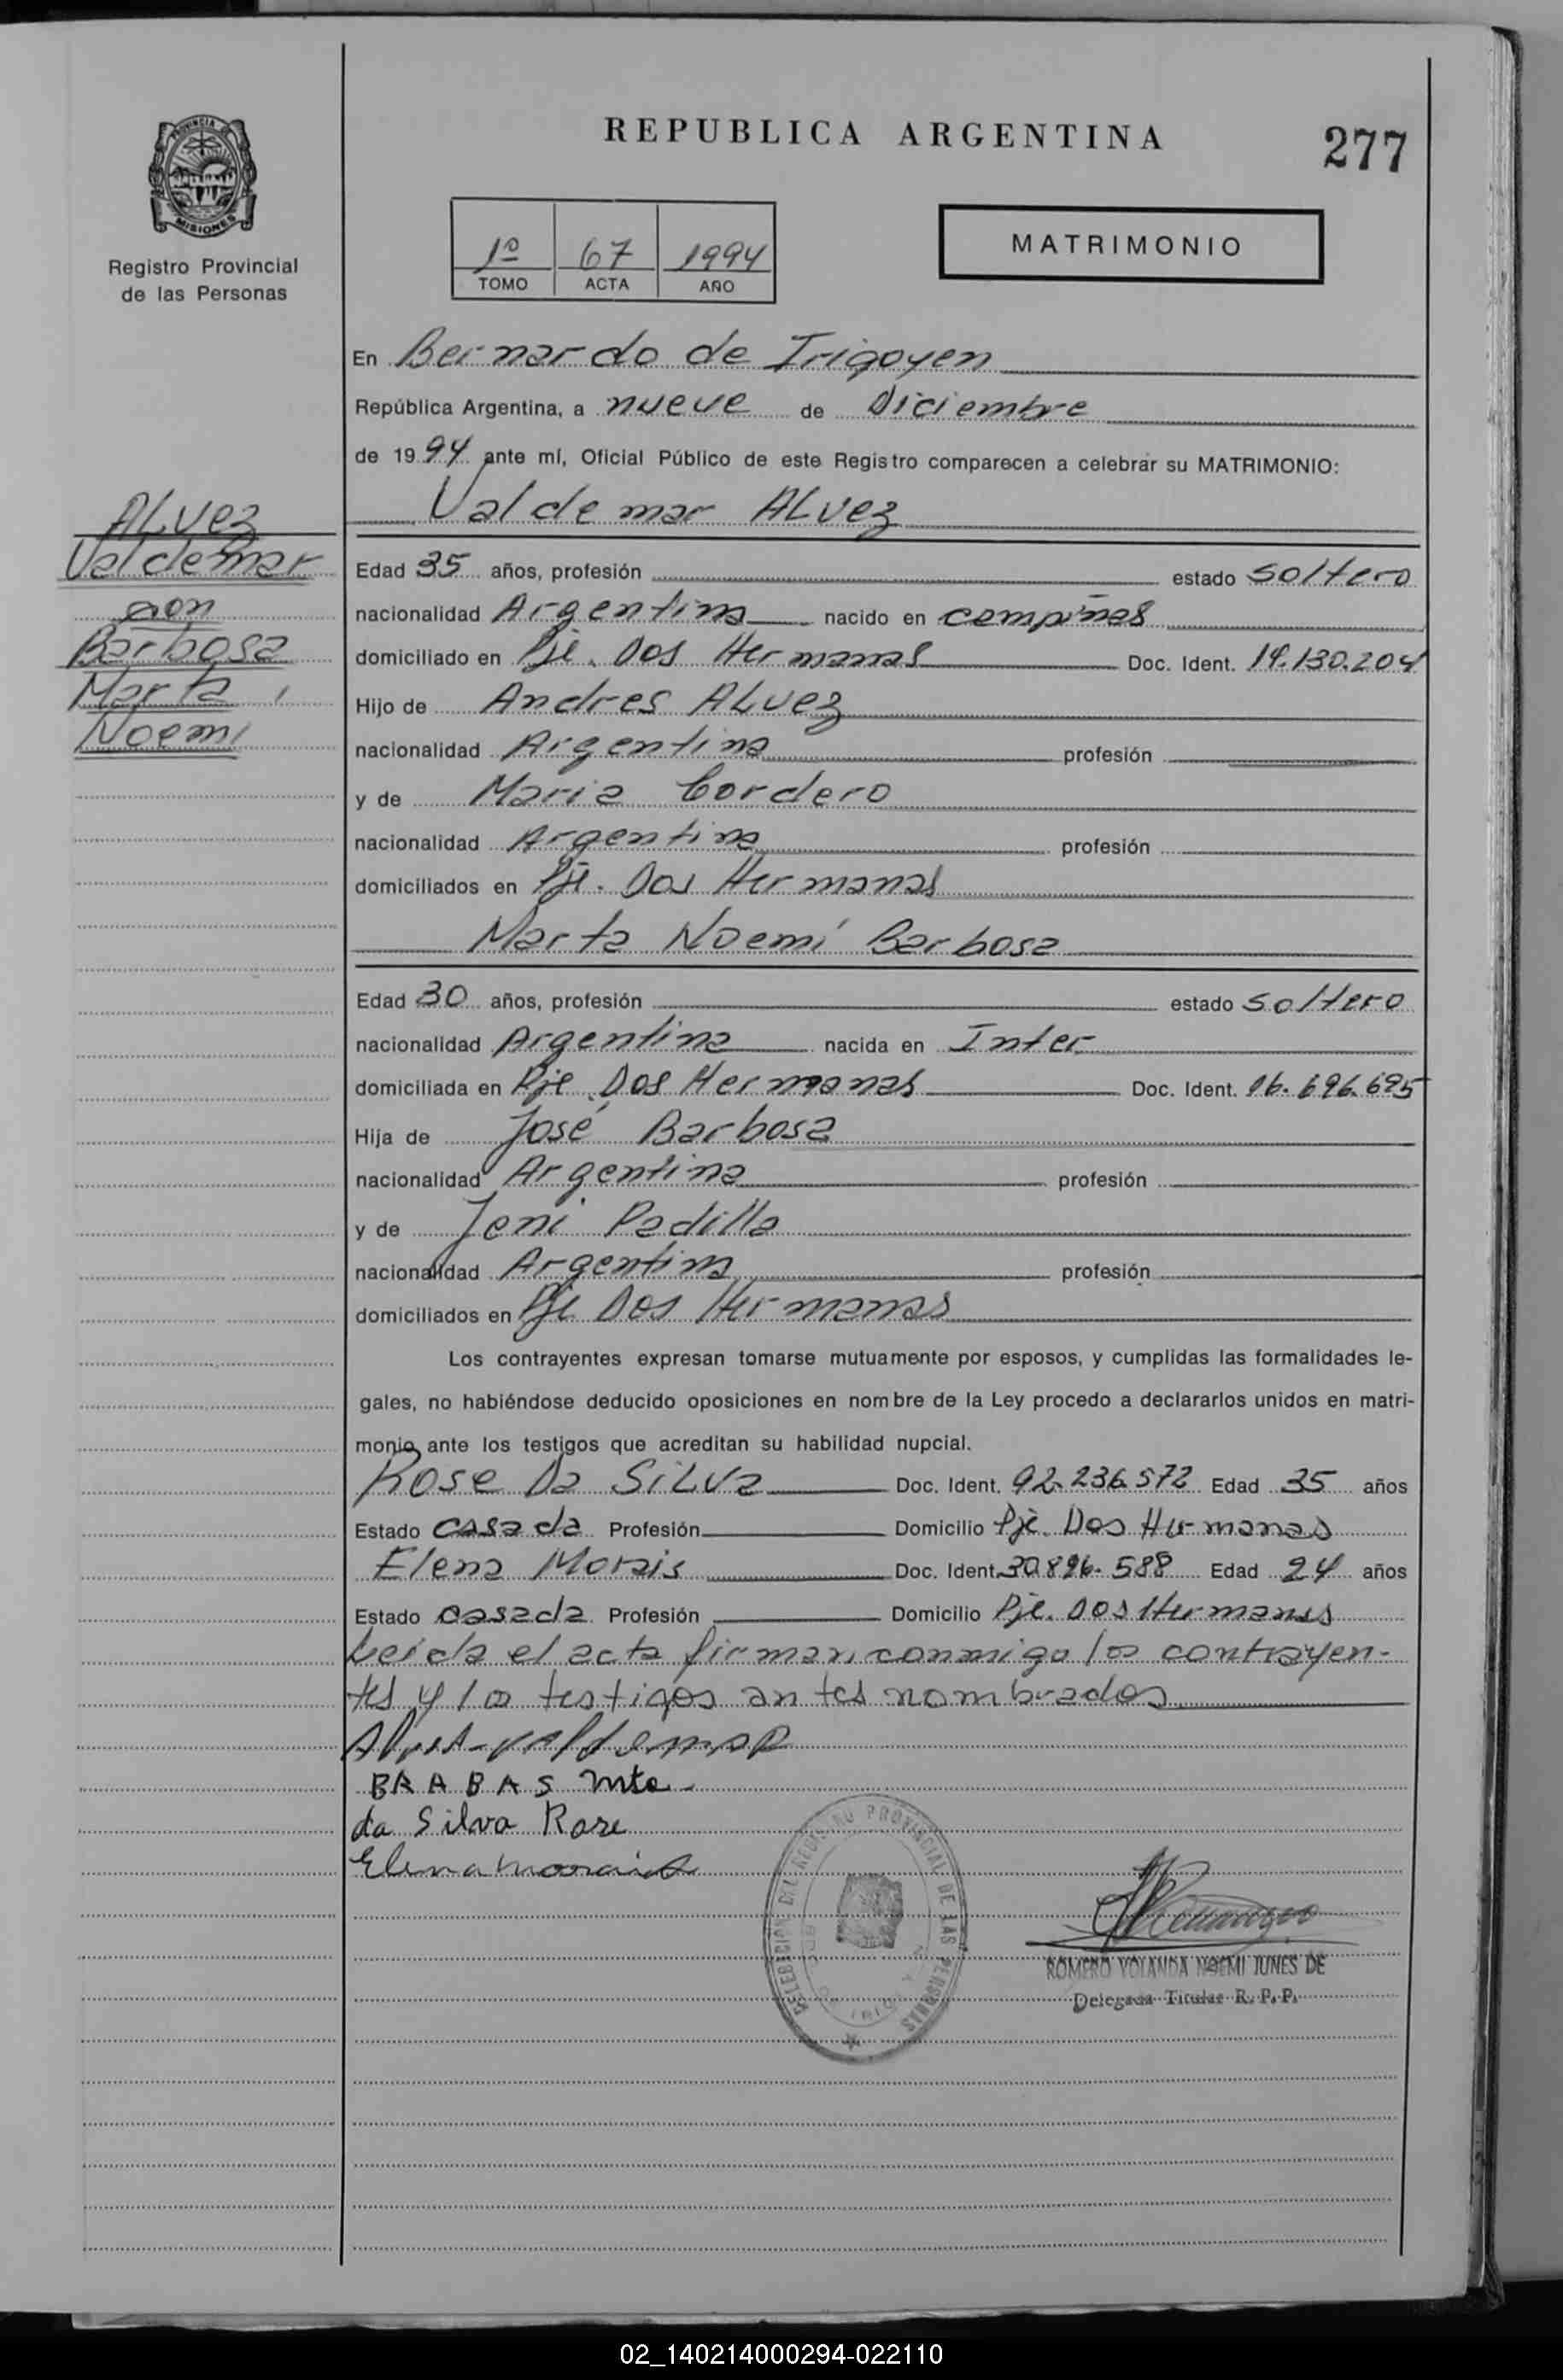 REPUBLICA ARGENTINA
277
PROVINCIA DE MISIONES
Registro Provincial
de las Personas
1º 67 1994
TOMO ACTA AÑO
MATRIMONIO
En Bernardo de Irigoyen
República Argentina, a nueve de Diciembre
de 1994 ante mí, Oficial Público de este Registro comparecen a celebrar su MATRIMONIO:
Valdemar ALvez
ALvez
Valdemar
con
Barbosa
Marta
Noemi
Edad 35 años, profesión estado soltero
nacionalidad Argentina nacido en campiñas
domiciliado en Pje. Dos Hermanas Doc. Ident. 14.130.204
Hijo de Andres ALvez
nacionalidad Argentina profesión
y de Maria Cordero
nacionalidad Argentina profesión
domiciliados en Pje. Dos Hermanas
Marta Noemí Barbosa
Edad 30 años, profesión estado soltero
nacionalidad Argentina nacida en Inter
domiciliada en Pje Dos Hermanas Doc. Ident. 16.696.695
Hija de José Barbosa
nacionalidad Argentina profesión
y de Jeni Padilla
nacionalidad Argentina profesión
domiciliados en Pje Dos Hermanas
Los contrayentes expresan tomarse mutuamente por esposos, y cumplidas las formalidades le-
gales, no habiéndose deducido oposiciones en nombre de la Ley procedo a declararlos unidos en matri-
monio ante los testigos que acreditan su habilidad nupcial.
Rose Da SiLva Doc. Ident. 92.236.572 Edad 35 años
Estado casada Profesión Domicilio Pje. Dos Hermanas
Elena Morais Doc. Ident. 30.896.588 Edad 24 años
Estado casada Profesión Domicilio Pje. Dos Hermanas
Leida el acta firman conmigo los contrayen-
tes y los testigos antes nombrados
Alves Valdemar
BRABAS mta
da Silva Rose
Elena Morais
DELEGACION DEL REGISTRO PROVINCIAL DE LAS PERSONAS
ROMERO YOLANDA NOEMI JUNES DE
Delegada Titular R. P. P.
02_140214000294-022110